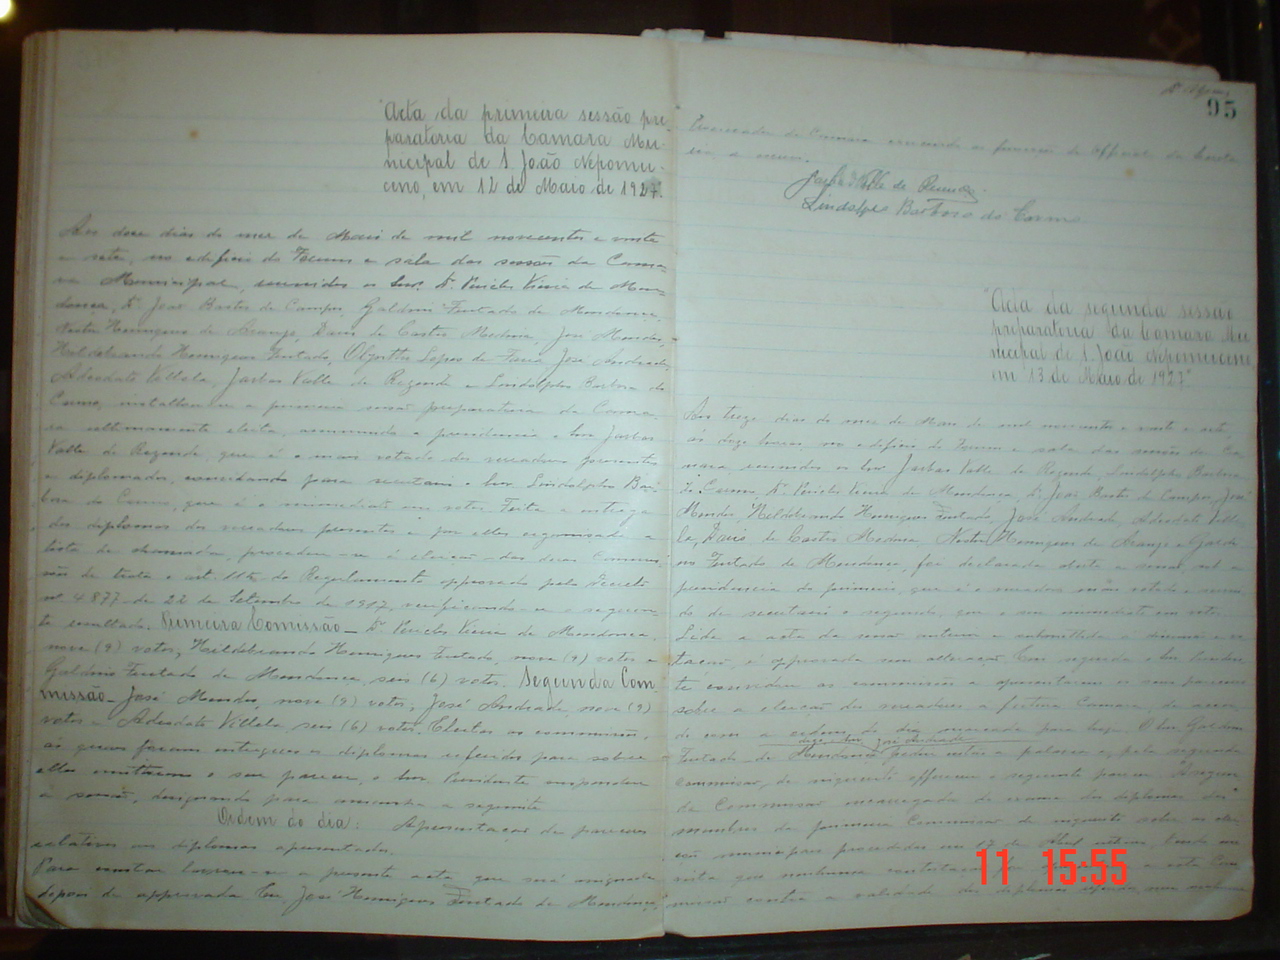 "Acta da primeira sessão pre-
paratoria da Camara Mu-
nicipal de S. João Nepomu-
ceno, em 12 de Maio de 1927."
Aos doze dias do mez de Maio de mil novecentos e vinte
e sete, no edificio do Forum e sala das sessões da Cama-
ra Municipal, reunidos os Snrs. Dr. Pericles Vieira de Men-
donça, Dr. José Bastos de Campos, Galdino Furtado de Mendonça,
Nestor Henriques de Araujo, Davis de Castro Medina, José Mendes,
Hildebrando Henriques Furtado, Olyntho Lopes de Faria, José Andrade,
Adeodato Villela, Jarbas Valle de Rezende e Lindolpho Barbosa do
Carmo, installou-se a primeira sessão preparatoria da Cama-
ra ultimamente eleita, assumindo a presidencia o Snr. Jarbas
Valle de Rezende, que é o mais votado dos vereadores presentes
e diplomados, convidando para secretario o Snr. Lindolpho Bar-
bosa do Carmo, que é o immediato em votos. Feita a entrega
dos diplomas dos vereadores presentes e por elles organisada a
lista de chamada, procedeu-se á eleição das duas commis-
sões de trata o art. do Regulamento approvado pelo Decreto
nº 4.877 de 22 de Setembro de 1917, verificando-se o seguin-
te resultado. Primeira Comissão – Dr. Pericles Vieira de Mendonça,
nove (9) votos; Hildebrando Henriques Furtado, nove (9) votos e
Galdino Furtado de Mendonça, seis (6) votos. Segunda Com
missão – José Mendes, nove (9) votos; José Andrade, nove (9)
votos e Adeodato Villela, seis (6) votos. Eleitas as commissões,
ás quaes foram entregues os diplomas referidos para sobre
elles emittirem o seu parecer, o Snr. Presidente suspendeu
a sessão, designando para amanhã a seguinte
Ordem do dia: Apresentação de pareceres
relativos aos diplomas apresentados.
Para constar lavrou-se a presente acta que será assignada
depois de approvada. Eu, José Henriques Furtado de Mendonça,
95
da Camara servindo as funcções de official da
Jarbas Valle de Rezende.
Lindolpho Barbosa do Carmo
"Acta da segunda sessão
preparatoria da Camara Mu
nicipal de S. João Nepomuceno
em 13 de Maio de 1927"
Aos treze dias do mez de Maio de mil novecentos e vinte e sete,
ás doze horas, no edificio do Forum e sala das sessões da Ca-
mara reunidos os Snrs Jarbas Valle de Rezende, Lindolpho Barbosa
do Carmo, Dr. Pericles Vieira de Mendonça, Dr. José Bastos de Campos, José
Mendes, Hildebrando Henriques Furtado, José Andrade, Adeodato Ville-
la, Davis de Castro Medina, Nestor Henriques de Araujo e Galdi-
no Furtado de Mendonça, foi declarada aberta a sessão, sob a
presidencia do primeiro, que é o vereador mais votado e servin-
do de secretario o segundo, que é seu immediato em votos.
Lida a acta da sessão anterior e submettida a discussão e vo-
tação, é approvada sem alteração. Em seguida o Snr. Presiden-
te convidou as commissões a apresentarem os seus pareceres
sobre a eleição dos vereadores a futura Camara, de accor-
do com a ordem do dia marcada para hoje. O Snr. Galdino
José Andrade
Furtado de Mendonça pediu então a palavra e, pela segunda
commissão, de inquerito offereceu o seguinte parecer: "A segun-
da Commissão encarregada do exame dos diplomas dos
membros da primeira Commissão de inquerito sobre as elei-
ções municipaes procedidas em 17 de Abril ultimo, tendo em
vista que nenhuma contestação a esta Com
missão contra a validade dos diplomas
11 15:55